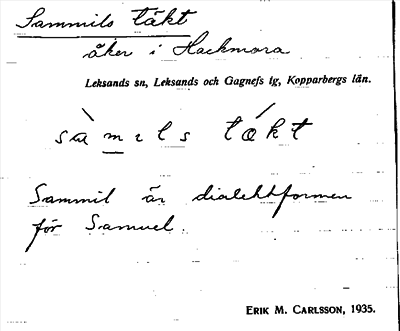 Sammils täkt
åker i Hackmora
Leksands sn, Leksands och Gagnefs tg, Kopparbergs län.
sàmıls tǿkt
Sammil är dialektformen
för Samuel.
ERIK M. CARLSSON, 1935.